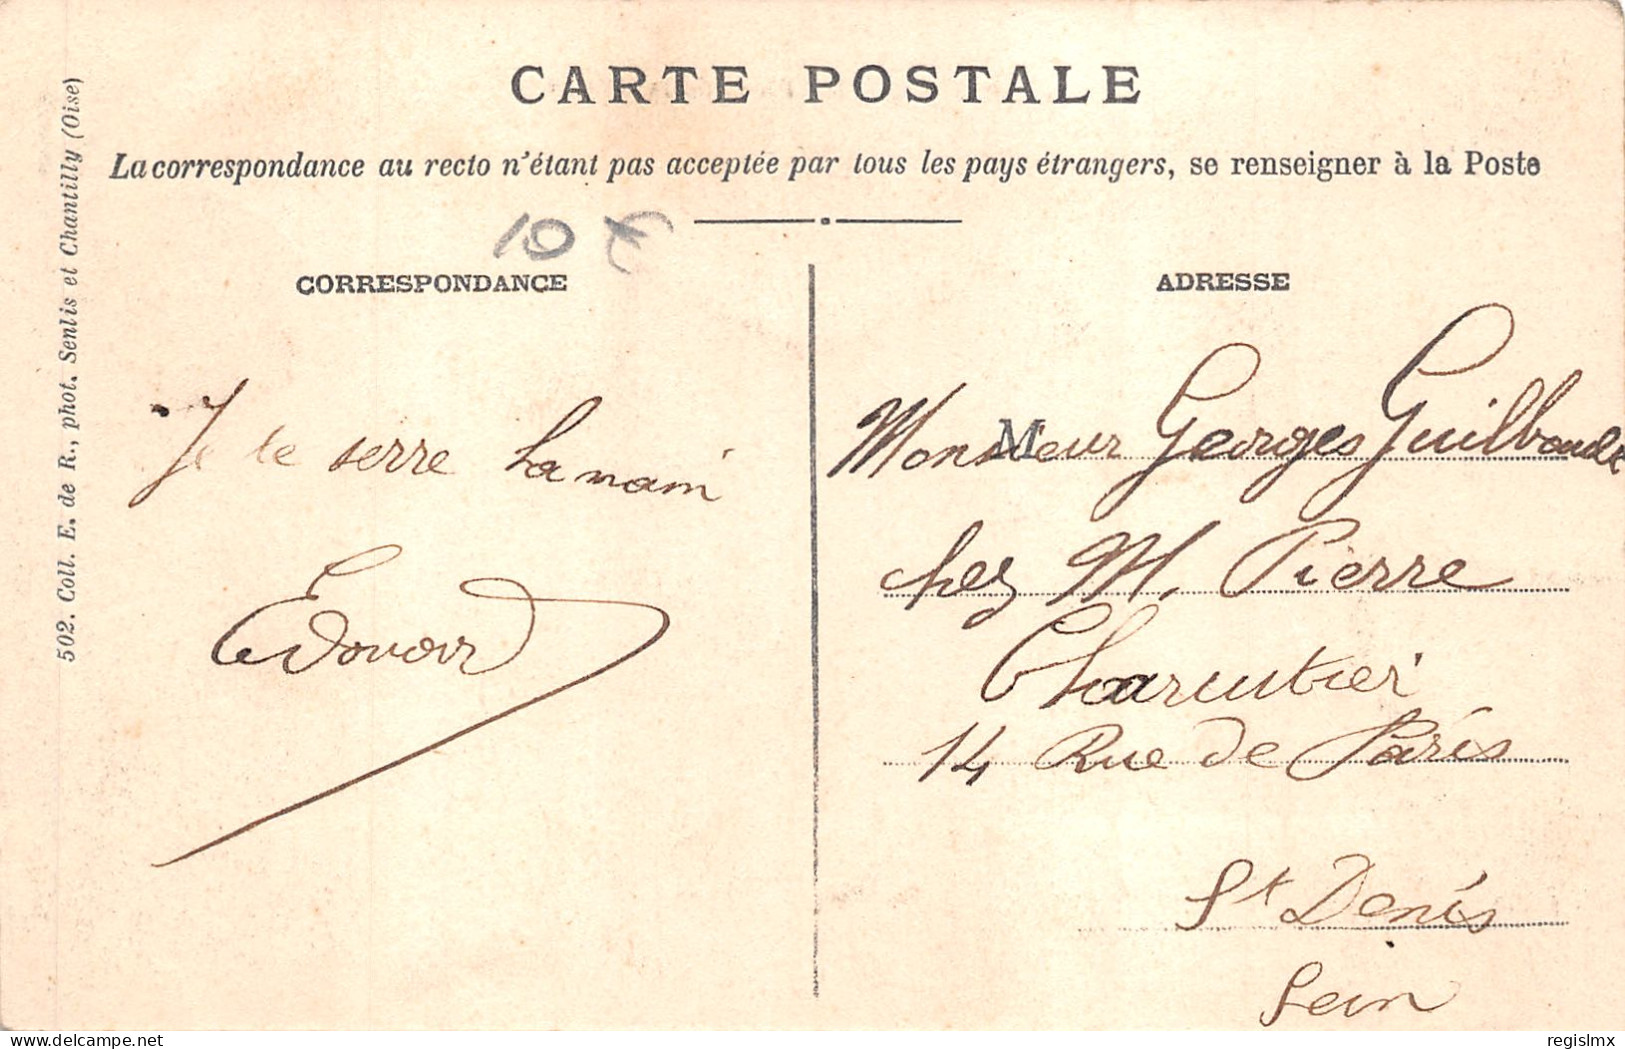 CARTE POSTALE
La correspondance au recto n'étant pas acceptée par tous les pays étrangers, se renseigner à la Poste
10 €
CORRESPONDANCE
Je te serre la main
Edouard
ADRESSE
M
Monsieur Georges Guilbaude
chez M. Pierre
Charcutier
14 Rue de Paris
St Denis
Sein
502. Coll. E. de R., phot. Senlis et Chantilly (Oise)
delcampe.net
regislmx